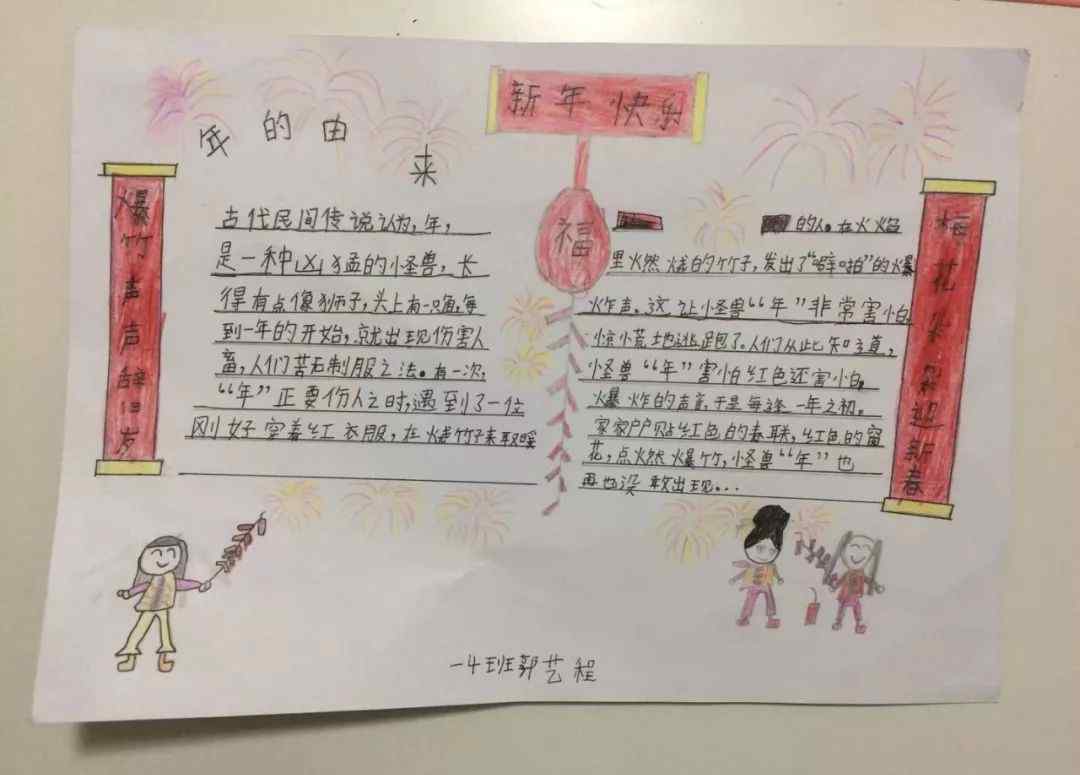 新年快乐
年的由来
爆竹声声辞旧岁
古代民间传说认为,年,
是一种凶猛的怪兽,长
得有点像狮子,头上有一只角,每
到一年的开始,就出现伤害人
畜,人们苦无制服之法。有一次,
“年”正要伤人之时,遇到了一位
刚好穿着红衣服,在烧竹子来取暖
福
的人。在火焰
里火然烧的竹子,发出了“噼啪”的爆
炸声。这让怪兽“年”非常害怕,
惊慌地逃跑了。人们从此知道,
怪兽“年”害怕红色还害怕,
爆炸的声音,于是每逢一年之初。
家家户户贴红色的春联,红色的窗
花,点火然爆竹,怪兽“年”也
再也没敢出现...
梅花朵朵迎新春
一4班郭艺程